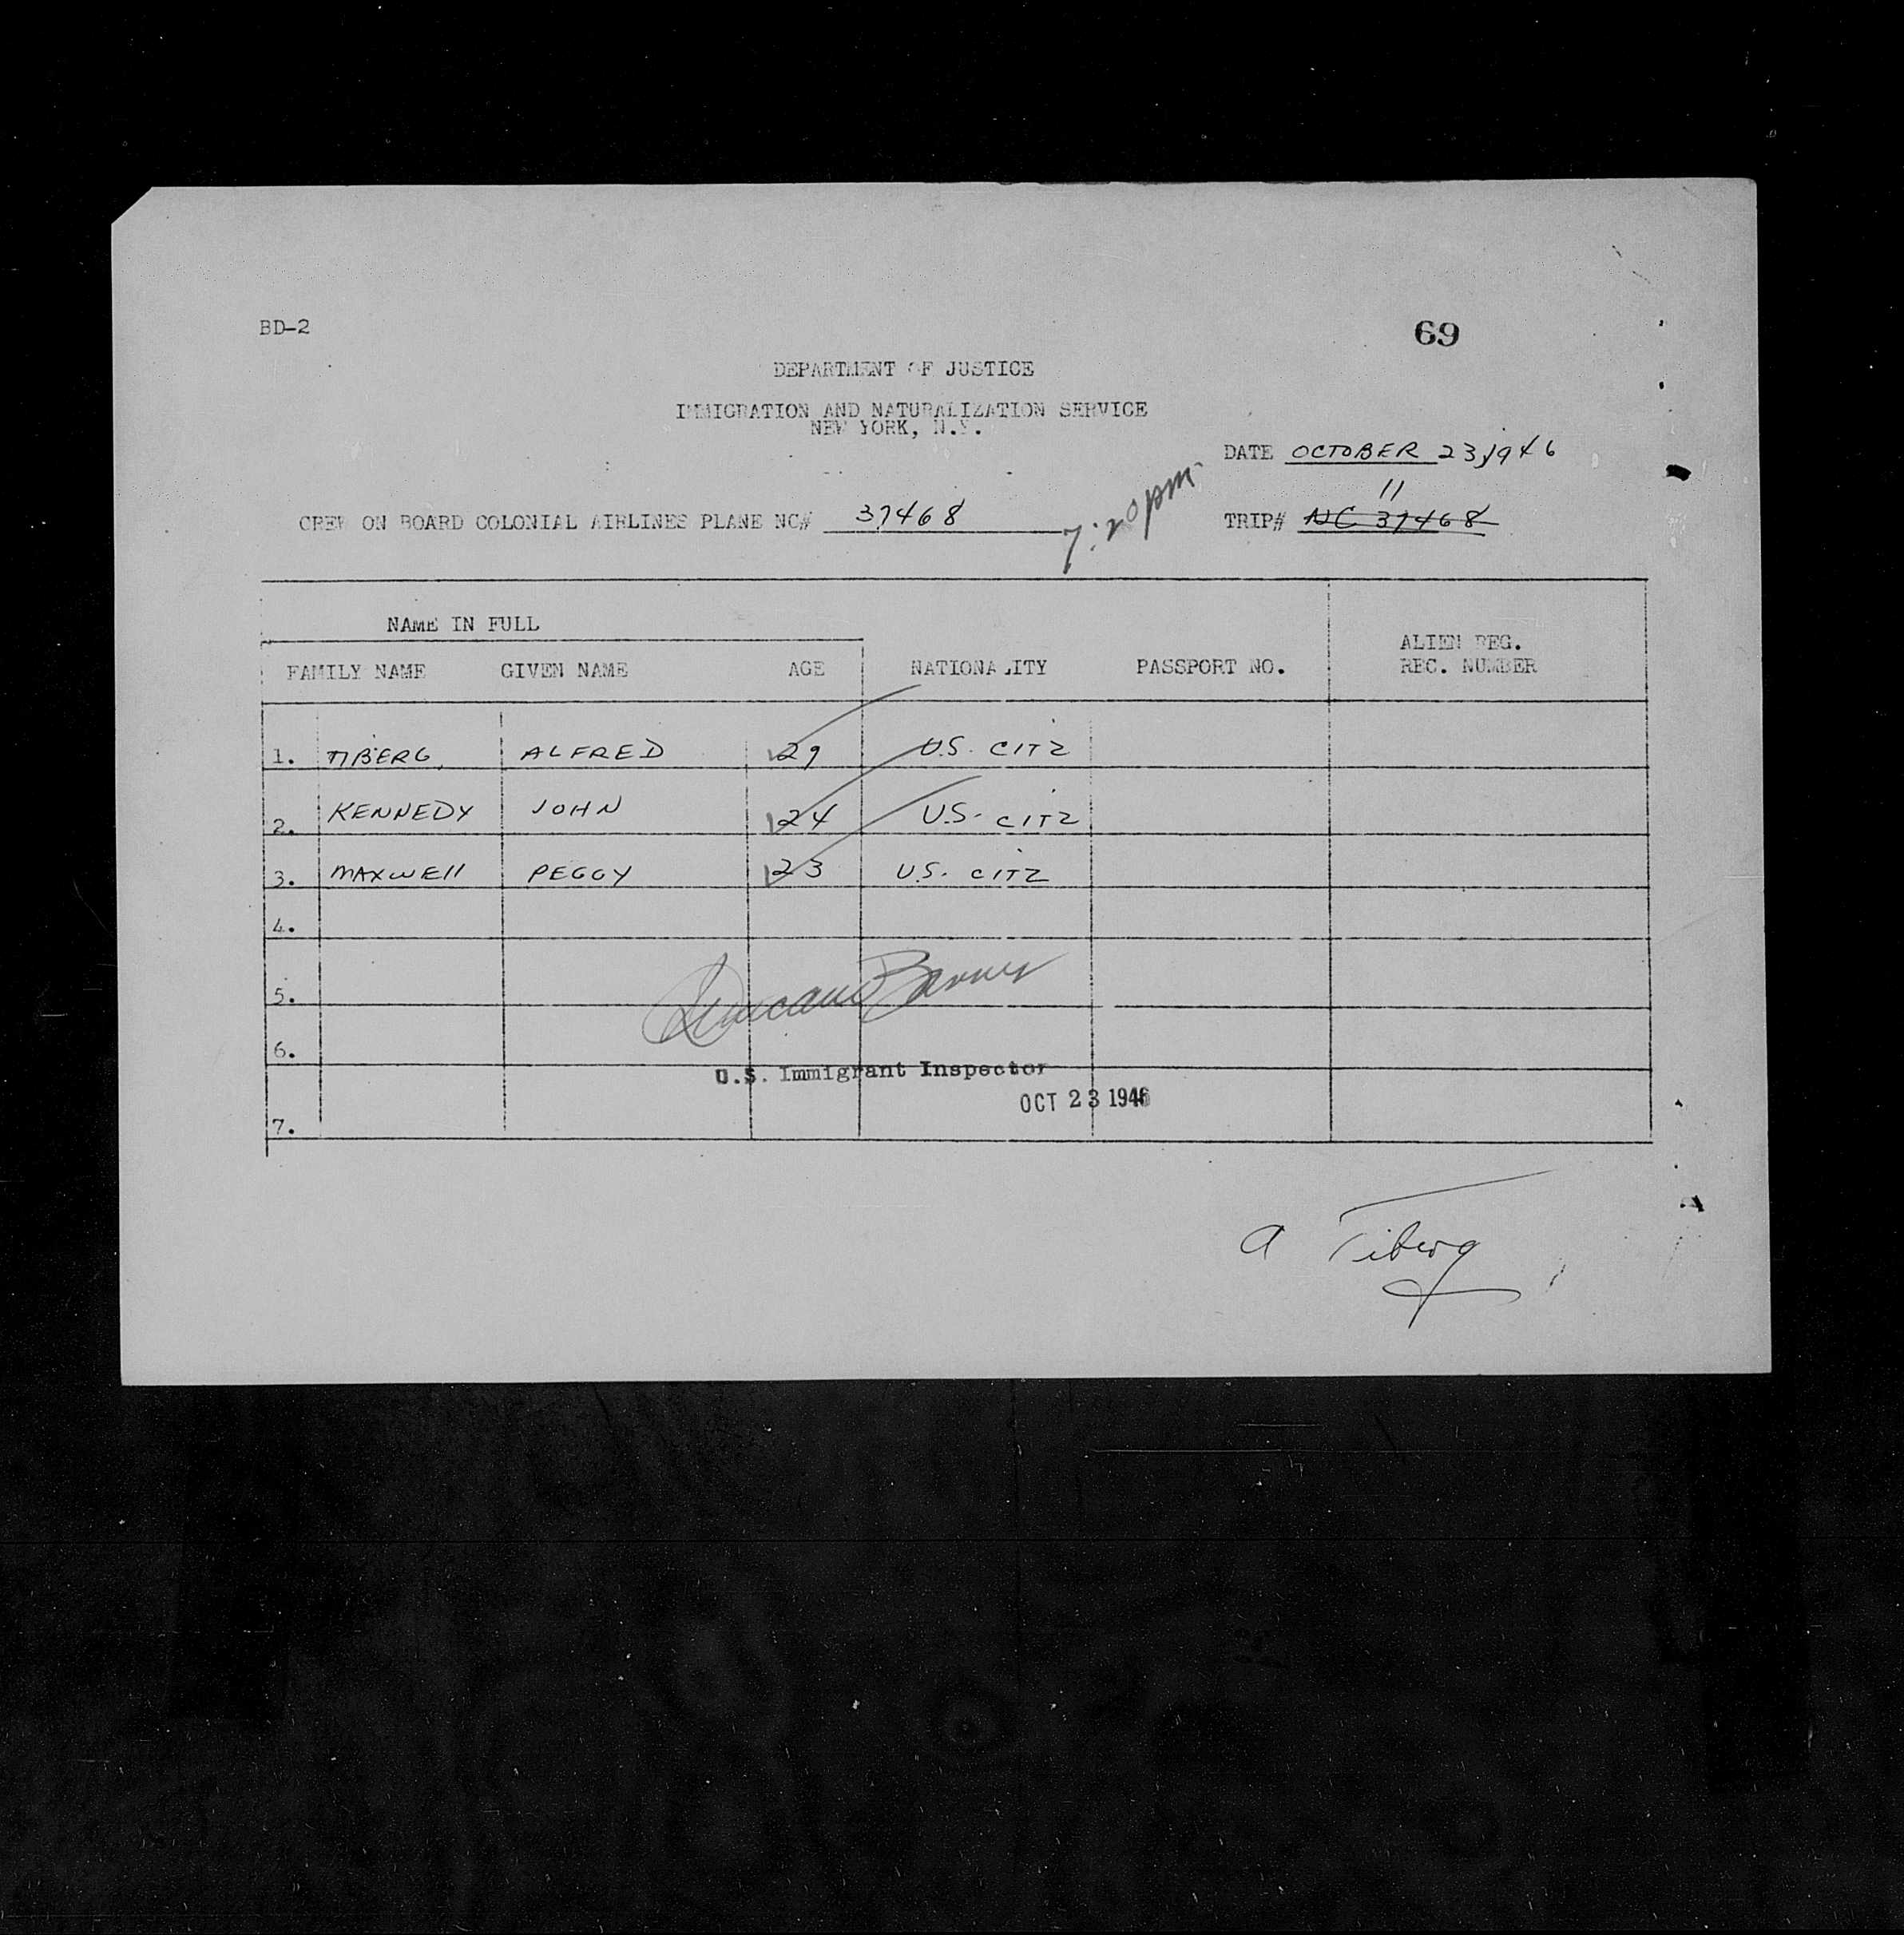 BD-2
69
DEPARTMENT OF JUSTICE
IMMIGRATION AND NATURALIZATION SERVICE
NEW YORK, N.Y.
DATE OCTOBER 23, 1946
11
CREW ON BOARD COLONIAL AIRLINES PLANE NC# 37468 7:20 pm. TRIP# NC 37468
NAME IN FULL
FAMILY NAME GIVEN NAME AGE NATIONALITY PASSPORT NO. ALIEN REG. REC. NUMBER
1. TIBERG, ALFRED 29 U.S. CITZ
2. KENNEDY JOHN 24 U.S. CITZ
3. MAXWEll PEGGY 23 U.S. CITZ
4.
5.
Duncan
6.
U.S. Immigrant Inspector
OCT 23 1946
7.
A Tiberg